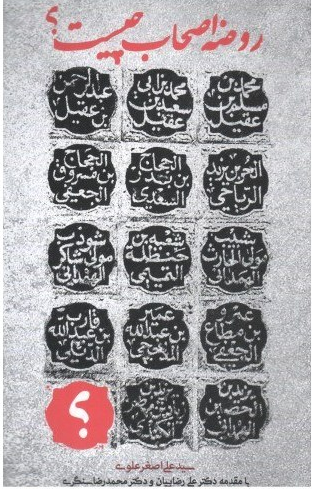 روضه اصحاب چیست؟
محمد بن
مسلم بن
عقیل
محمد بن ابی
سعید بن
عقیل
عبدالرحمن
بن عقیل
الحر بن یزید
الریاحی
الحجاج
بن بدر
السعدی
الحجاج
بن مسروق
الجعفی
شبیب
مولی الحارث
الهمدانی
حنظلة
شوذب
مولی شاکر
الهمدانی
عمرو
بن مطاع
الجعفی
عمیر
بن عبدالله
المذحجی
قارب
بن عبدالله
الدئلی
یزید بن
الحصین
الهمدانی
یزید بن
الکندی
؟
سید علی اصغر علوی
با مقدمه دکتر علی رضابیان و دکتر محمدرضا سنگری